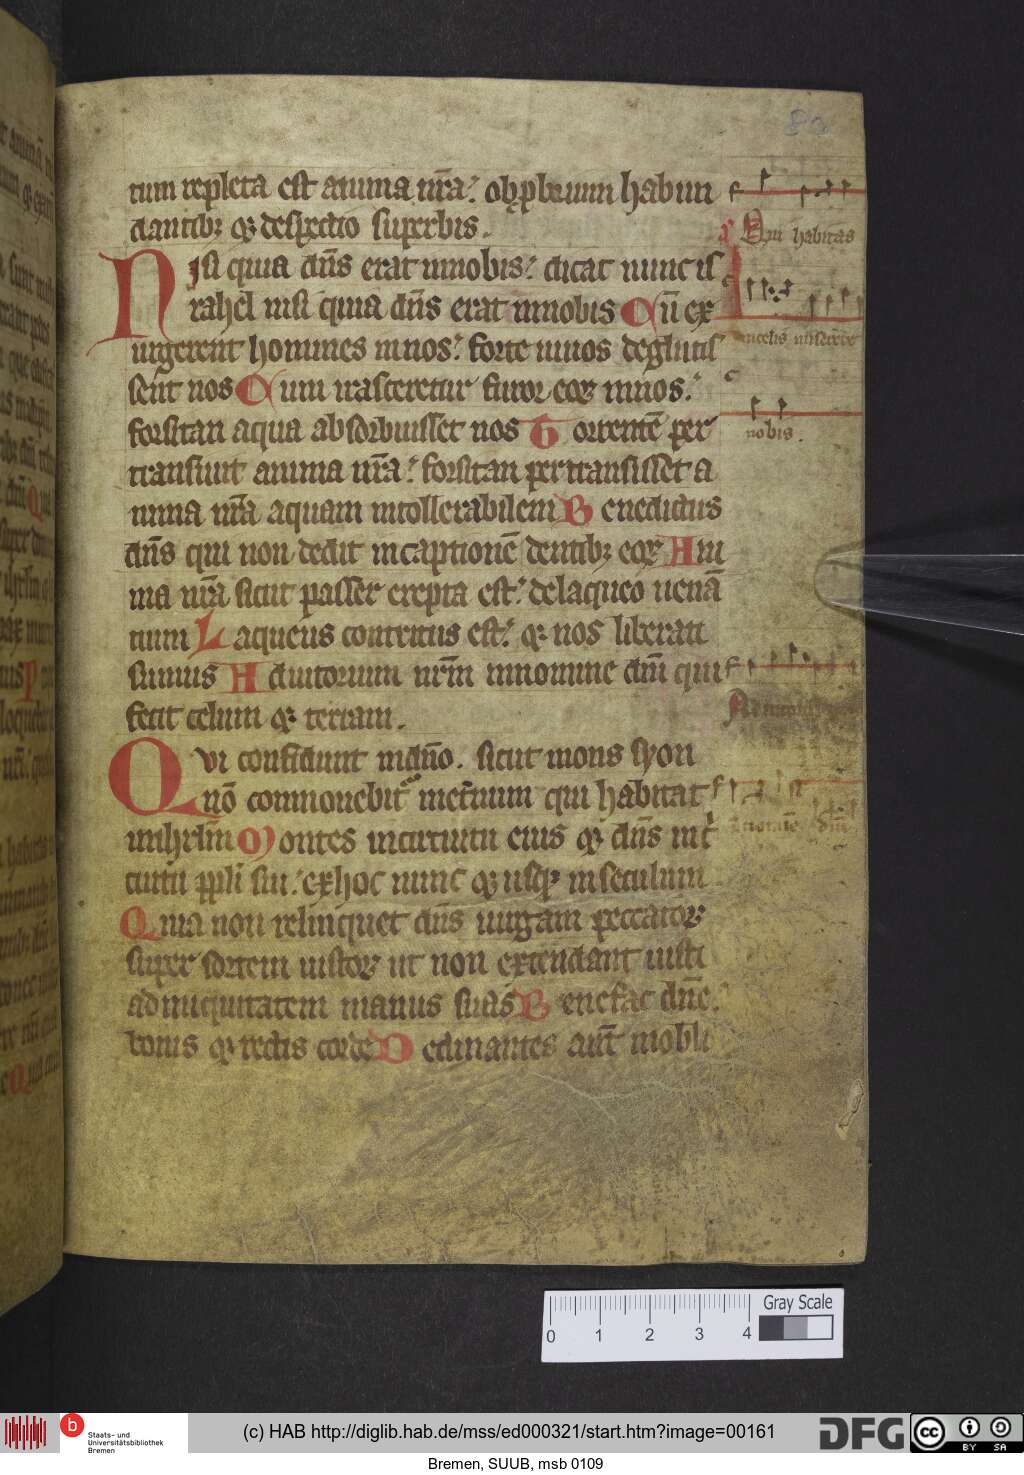 tum repleta est anima nr̄a. obp̱brium habun
dantibꝫ ⁊ despectio superbis.
Nisi quia dn̄s erat innobis. dicat nunc isr̄
rahel nisi quia dn̄s erat innobis Cū ex
urgerent homines innos. forte uiuos deglutis
sent nos Cum irasceretur furor eoꝝ innos.
forsitan aqua absorbuisset nos Torrentē per
transiuit anima nr̄a. forsitan pertransisset a
nima nr̄a aquam intollerabilem Benedictus
dn̄s qui non dedit incaptionē dentibꝫ eoꝝ Ani
ma nr̄a sicut passer erepta est. delaqueo uenā
tium Laqueus contritus est. ⁊ nos liberati
sumus Adiutorium nr̄m innomine dn̄i qui
fecit celum ⁊ terram.
Qvi confidunt indn̄o. sicut mons syon
nō commouebit̄ inet̄num qui habitat
inihrlm̄ Montes incircuitu eius ⁊ dn̄s incir
cuitu ppli sui. exhoc nunc ⁊ usqꝫ inseculum
Quia non relinquet dn̄s uirgam peccatoꝝ
super sortem iustoꝝ ut non extendant iusti
adiniquitatem manus suas Benefac dn̄e.
bonis ⁊ rectis corde Declinantes aut̄ inobli
Qui habitas
incelis miserere
nobis.
Adiutorium
in nomine dn̄i
0 1 2 3 4
Gray Scale
b Staats- und
Universitätsbibliothek
Bremen
(c) HAB http://diglib.hab.de/mss/ed000321/start.htm?image=00161
DFG
cc BY SA
Bremen, SUUB, msb 0109